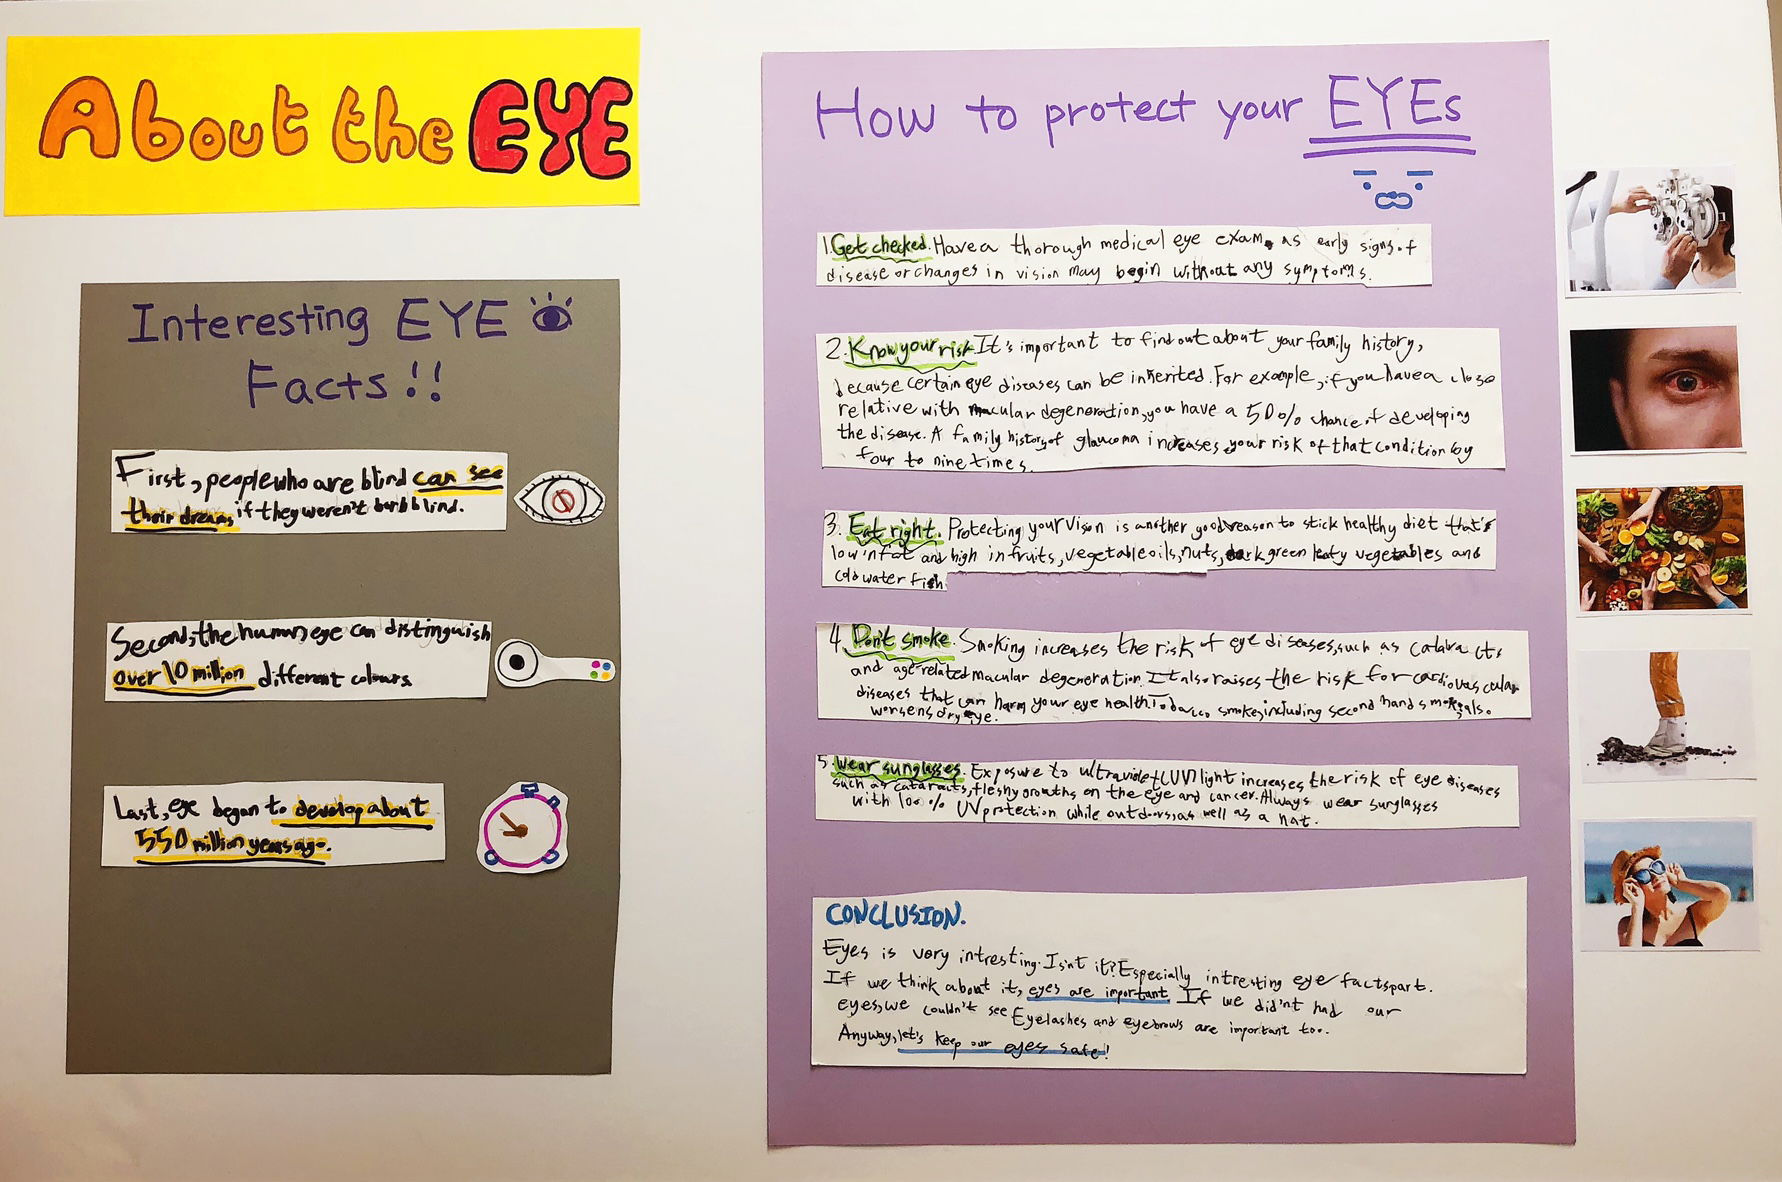 About the EYE
Interesting EYE
Facts!!
First, people who are blind can see
their dreams, if they weren't born blind.
Second, the human eye can distinguish
over 10 million different colours.
Last, eye began to develop about
550 million years ago.
How to protect your EYEs
1. Get checked. Have a thorough medical eye exam, as early signs of
disease or changes in vision may begin without any symptoms.
2. Know your risk It's important to find out about your family history,
because certain eye diseases can be inherited. For example, if you have a close
relative with macular degeneration, you have a 50% chance of developing
the disease. A family history of glaucoma increases your risk of that condition by
four to nine times.
3. Eat right. Protecting your vision is another good reason to stick healthy diet that's
low in fat and high in fruits, vegetable oils, nuts, dark green leafy vegetables and
cold water fish.
4. Don't smoke. Smoking increases the risk of eye diseases, such as cataracts
and age-related macular degeneration. It also raises the risk for cardiovascular
diseases that can harm your eye health. Tobacco smoke, including second hand smoke, als.
worsens dry eye.
5. Wear sunglasses. Exposure to ultraviolet (UV) light increases the risk of eye diseases
such as cataracts, fleshy growths on the eye and cancer. Always wear sunglasses
with 100% UV protection while outdoors, as well as a hat.
CONCLUSION.
Eyes is very intresting. Isn't it? Especially intresting eye facts part.
If we think about it, eyes are important. If we didn't had our
eyes, we couldn't see Eyelashes and eyebrows are important too.
Anyway, let's keep our eyes safe!